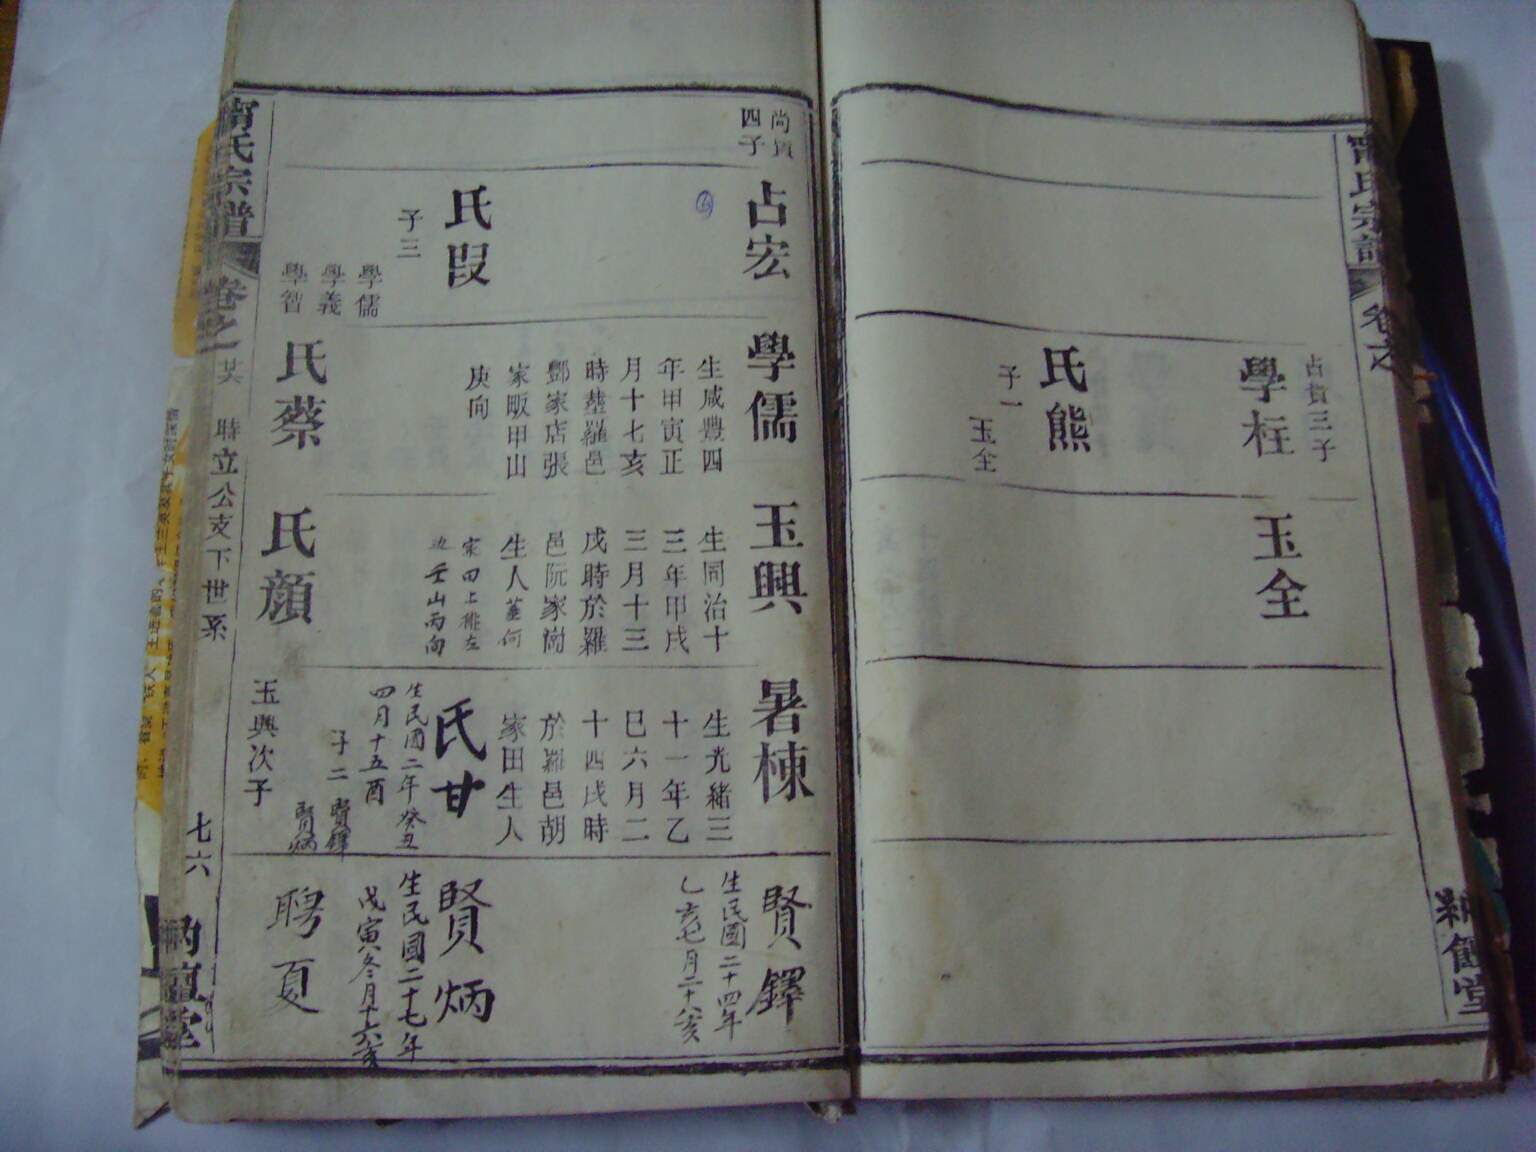 氏宗譜
卷之
占貴三子
學柱
氏熊
子一
玉全
玉全
四子
占宏
氏叚
子三
學儒
學義
學智
學儒
生咸豐四
年甲寅正
月十七亥
時塟羅邑
酆家店張
家畈甲山
庚向
氏蔡
玉興
生同治十
三年甲戌
三月十三
戌時於羅
邑阮家崗
生人塟何
家田上排左
山丙向
氏顏
暑棟
生光緒三
十一年乙
巳六月二
十四戌時
於羅邑胡
家田生人
氏甘
生民國二年癸丑
四月十五酉
子二
賢鐸
賢炳
玉興次子
賢鐸
生民國二十四年
乙亥七月二十八亥
賢炳
生民國二十七年
戊寅冬月十六亥
聘夏
氏宗譜
卷之一
時立公支下世系
七六
堂